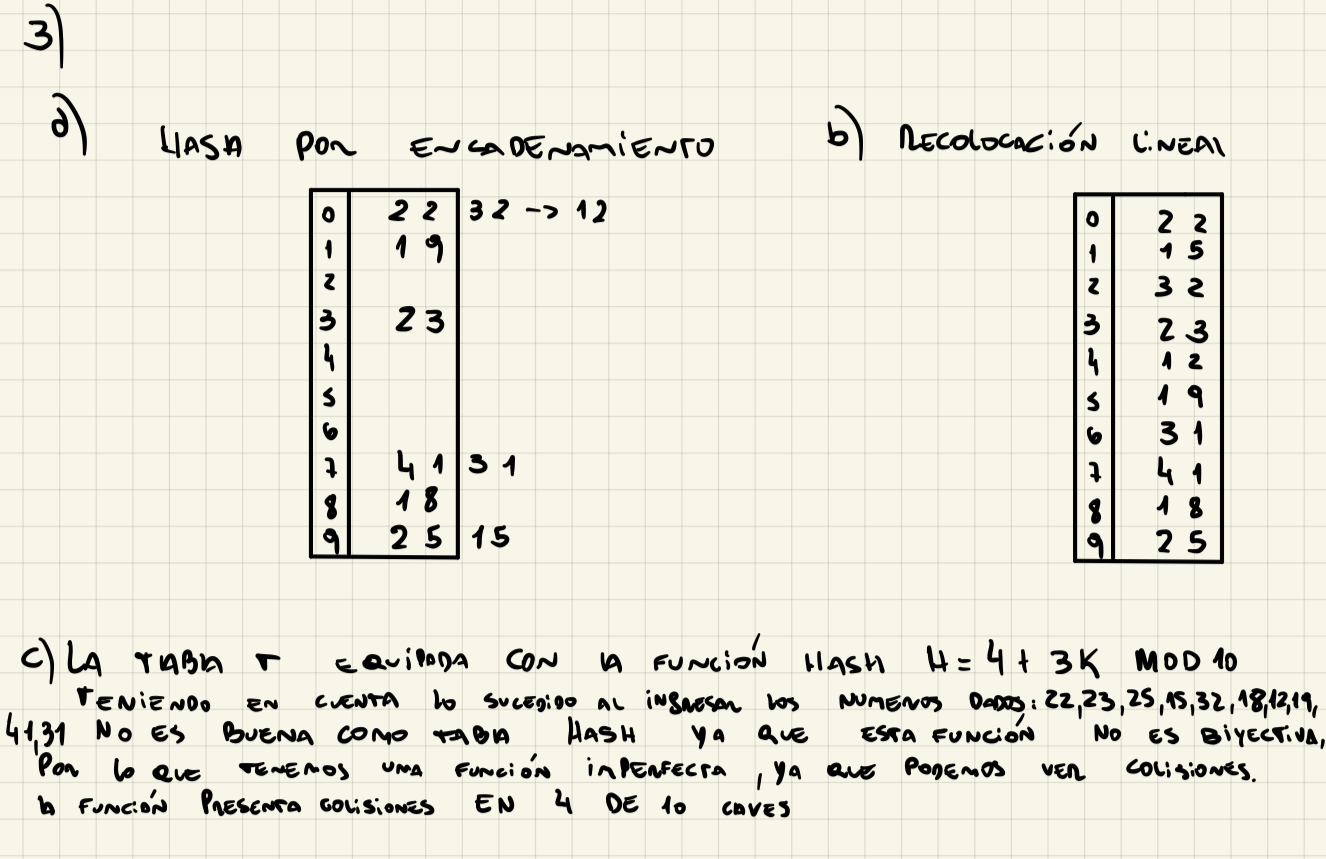 3)
a) HASH POR ENCADENAMIENTO
0 22 32 -> 12
1 19
2
3 23
4
5
6
7 41 31
8 18
9 25 15
b) RECOLOCACIÓN LINEAL
0 22
1 15
2 32
3 23
4 12
5 19
6 31
7 41
8 18
9 25
c) LA TABLA T EQUIPADA CON LA FUNCIÓN HASH H = 4 + 3K MOD 10
TENIENDO EN CUENTA LO SUCEDIDO AL INGRESAR LOS NUMEROS DADOS: 22,23,25,15,32,18,12,19,
41,31 NO ES BUENA COMO TABLA HASH YA QUE ESTA FUNCIÓN NO ES BIYECTIVA,
POR LO QUE TENEMOS UNA FUNCIÓN IMPERFECTA, YA QUE PODEMOS VER COLISIONES.
LA FUNCIÓN PRESENTA COLISIONES EN 4 DE 10 CAVES